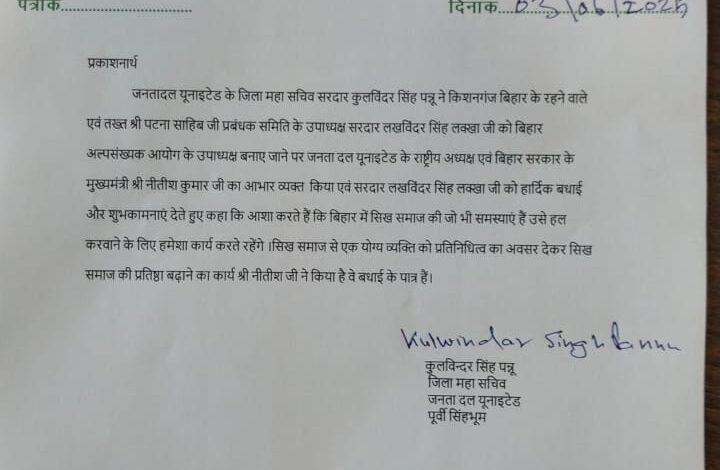 पत्रांक................................ दिनांक...03/06/2025
प्रकाशनार्थ
जनतादल यूनाइटेड के जिला महा सचिव सरदार कुलविंदर सिंह पन्नू ने किशनगंज बिहार के रहने वाले
एवं तख्त श्री पटना साहिब जी प्रबंधक समिति के उपाध्यक्ष सरदार लखविंदर सिंह लक्खा जी को बिहार
अल्पसंख्यक आयोग के उपाध्यक्ष बनाए जाने पर जनता दल यूनाइटेड के राष्ट्रीय अध्यक्ष एवं बिहार सरकार के
मुख्यमंत्री श्री नीतीश कुमार जी का आभार व्यक्त किया एवं सरदार लखविंदर सिंह लक्खा जी को हार्दिक बधाई
और शुभकामनाएं देते हुए कहा कि आशा करते हैं कि बिहार में सिख समाज की जो भी समस्याएं हैं उसे हल
करवाने के लिए हमेशा कार्य करते रहेंगे ।सिख समाज से एक योग्य व्यक्ति को प्रतिनिधित्व का अवसर देकर सिख
समाज की प्रतिष्ठा बढ़ाने का कार्य श्री नीतीश जी ने किया है वे बधाई के पात्र हैं।
Kulwindar Singh Pannu
कुलविन्दर सिंह पन्नू
जिला महा सचिव
जनता दल यूनाइटेड
पूर्वी सिंहभूम